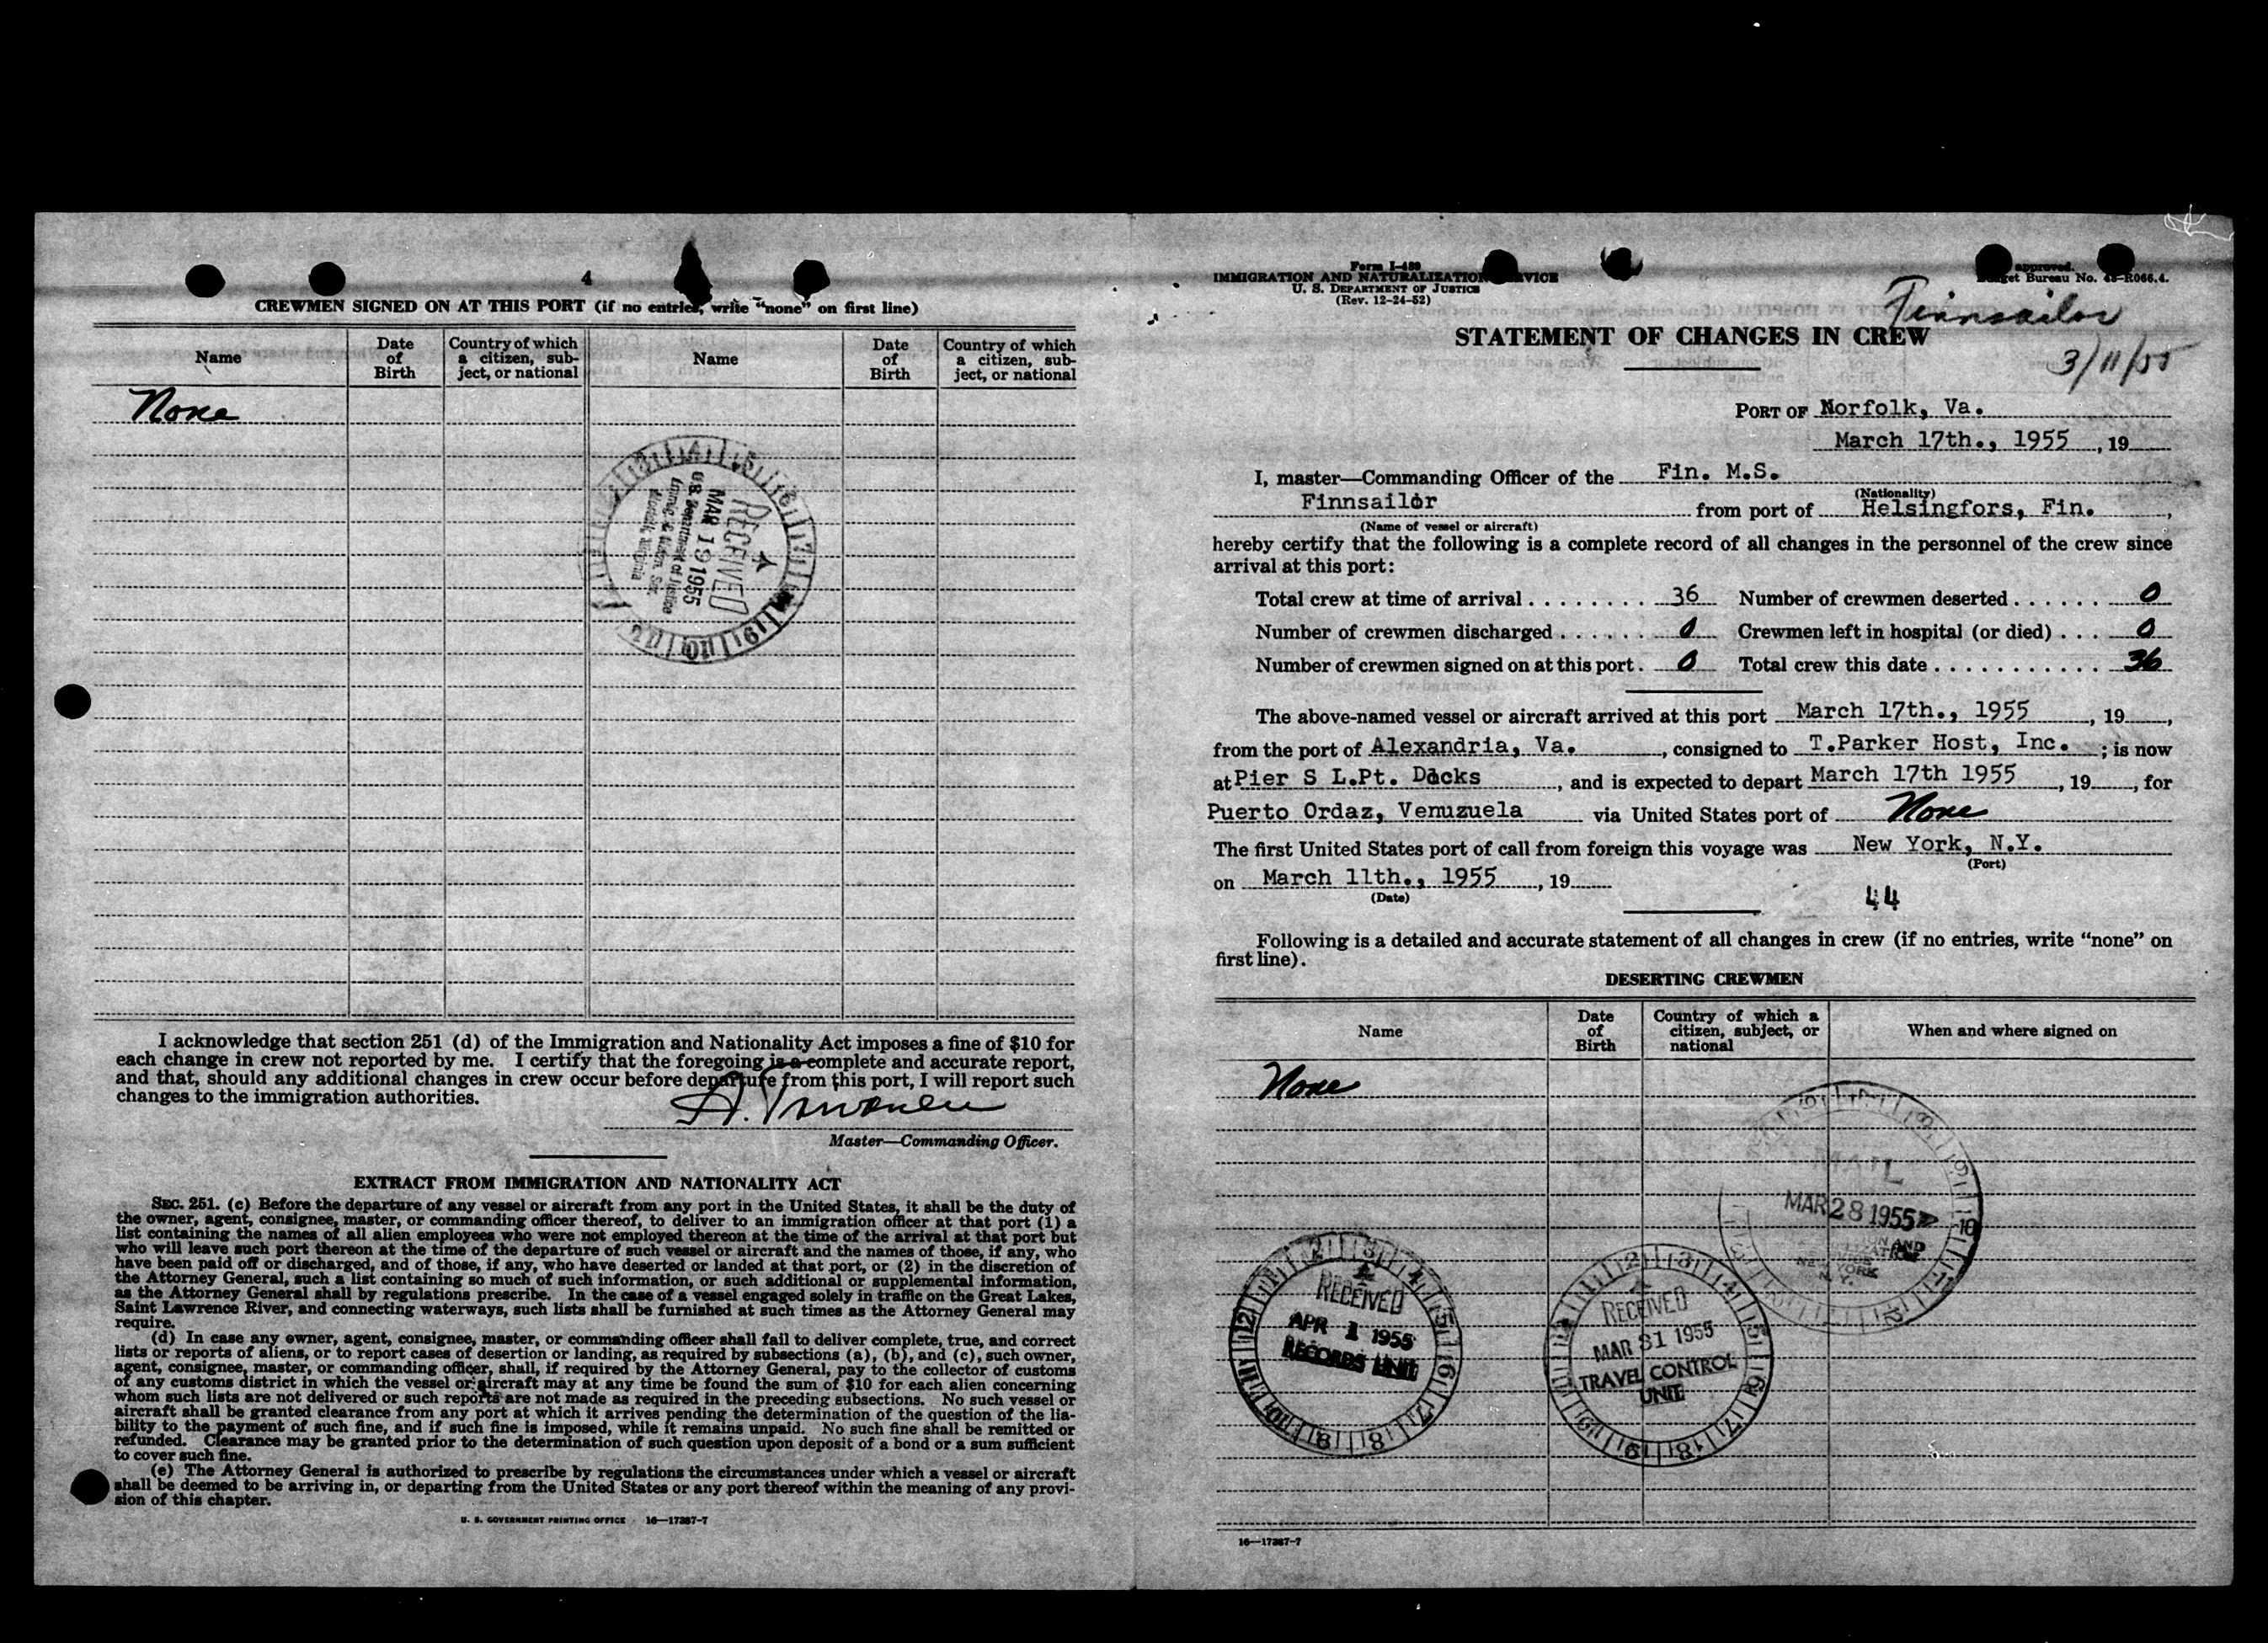 4
CREWMEN SIGNED ON AT THIS PORT (if no entries, write "none" on first line)
Name
Date of Birth
Country of which a citizen, subject, or national
Name
Date of Birth
Country of which a citizen, subject, or national
None
RECEIVED
MAR 19 1955
U.S. Department of Justice
Immig. & Natzn. Ser.
Norfolk, Virginia
I acknowledge that section 251 (d) of the Immigration and Nationality Act imposes a fine of $10 for
each change in crew not reported by me. I certify that the foregoing is a complete and accurate report,
and that, should any additional changes in crew occur before departure from this port, I will report such
changes to the immigration authorities.
Master—Commanding Officer.
EXTRACT FROM IMMIGRATION AND NATIONALITY ACT
SEC. 251. (c) Before the departure of any vessel or aircraft from any port in the United States, it shall be the duty of
the owner, agent, consignee, master, or commanding officer thereof, to deliver to an immigration officer at that port (1) a
list containing the names of all alien employees who were not employed thereon at the time of the arrival at that port but
who will leave such port thereon at the time of the departure of such vessel or aircraft and the names of those, if any, who
have been paid off or discharged, and of those, if any, who have deserted or landed at that port, or (2) in the discretion of
the Attorney General, such a list containing so much of such information, or such additional or supplemental information,
as the Attorney General shall by regulations prescribe. In the case of a vessel engaged solely in traffic on the Great Lakes,
Saint Lawrence River, and connecting waterways, such lists shall be furnished at such times as the Attorney General may
require.
(d) In case any owner, agent, consignee, master, or commanding officer shall fail to deliver complete, true, and correct
lists or reports of aliens, or to report cases of desertion or landing, as required by subsections (a), (b), and (c), such owner,
agent, consignee, master, or commanding officer, shall, if required by the Attorney General, pay to the collector of customs
of any customs district in which the vessel or aircraft may at any time be found the sum of $10 for each alien concerning
whom such lists are not delivered or such reports are not made as required in the preceding subsections. No such vessel or
aircraft shall be granted clearance from any port at which it arrives pending the determination of the question of the lia-
bility to the payment of such fine, and if such fine is imposed, while it remains unpaid. No such fine shall be remitted or
refunded. Clearance may be granted prior to the determination of such question upon deposit of a bond or a sum sufficient
to cover such fine.
(e) The Attorney General is authorized to prescribe by regulations the circumstances under which a vessel or aircraft
shall be deemed to be arriving in, or departing from the United States or any port thereof within the meaning of any provi-
sion of this chapter.
U. S. GOVERNMENT PRINTING OFFICE 16—17387-7
Form I-489
IMMIGRATION AND NATURALIZATION SERVICE
U. S. DEPARTMENT OF JUSTICE
(Rev. 12-24-52)
approved.
Budget Bureau No. 43-R066.4.
Finnsailor
3/11/55
STATEMENT OF CHANGES IN CREW
PORT OF Norfolk, Va.
March 17th., 1955, 19
I, master—Commanding Officer of the Fin. M.S.
(Nationality)
Finnsailor from port of Helsingfors, Fin.,
(Name of vessel or aircraft)
hereby certify that the following is a complete record of all changes in the personnel of the crew since
arrival at this port:
Total crew at time of arrival . . . . . . . . 36 Number of crewmen deserted . . . . . . 0
Number of crewmen discharged . . . . . . 0 Crewmen left in hospital (or died) . . . 0
Number of crewmen signed on at this port . 0 Total crew this date . . . . . . . . . . . 36
The above-named vessel or aircraft arrived at this port March 17th., 1955, 19 ,
from the port of Alexandria, Va., consigned to T.Parker Host, Inc. ; is now
at Pier S L.Pt. Docks, and is expected to depart March 17th 1955, 19 , for
Puerto Ordaz, Venuzuela via United States port of None
The first United States port of call from foreign this voyage was New York, N.Y.
(Port)
on March 11th., 1955, 19
(Date)
44
Following is a detailed and accurate statement of all changes in crew (if no entries, write "none" on
first line).
DESERTING CREWMEN
Name
Date of Birth
Country of which a citizen, subject, or national
When and where signed on
None
MAIL
MAR 28 1955
NEW YORK
N. Y.
RECEIVED
APR 1 1955
RECORDS UNIT
RECEIVED
MAR 31 1955
TRAVEL CONTROL
UNIT
16—17387-7